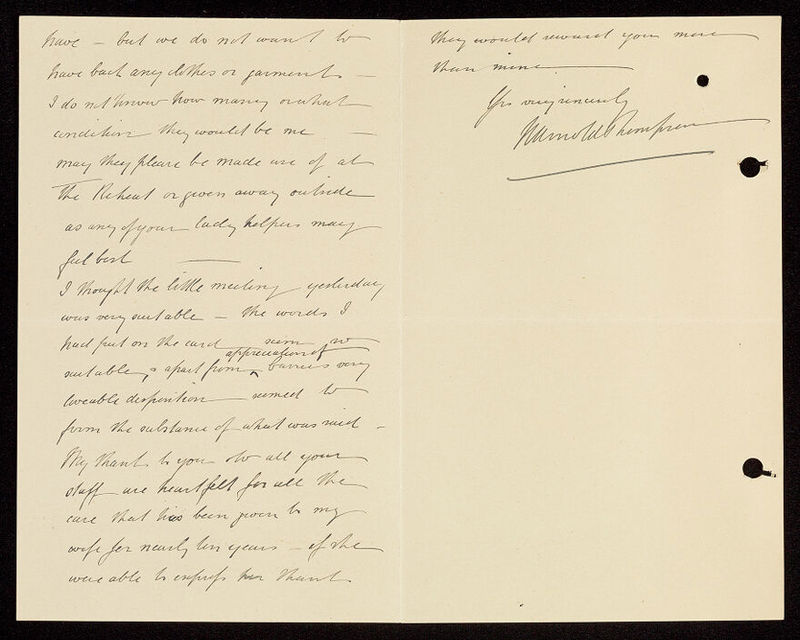 have – but we do not want to
have back any clothes or garments –
I do not know how many or what
condition they would be in –
may they please be made use of at
The Retreat or given away outside
as any of your lady helpers may
feel best –
I thought the little meeting yesterday
was very suitable – the words I
had put on the card seem so
suitable, & apart from appreciation of very
loveable disposition seemed to
form the substance of what was said –
My thanks to you & to all your
staff are heartfelt for all the
care that has been given to my
wife for nearly ten years – if she
were able to express her thanks
they would reward you more
than mine
Yrs very sincerely
Arnold Thompson